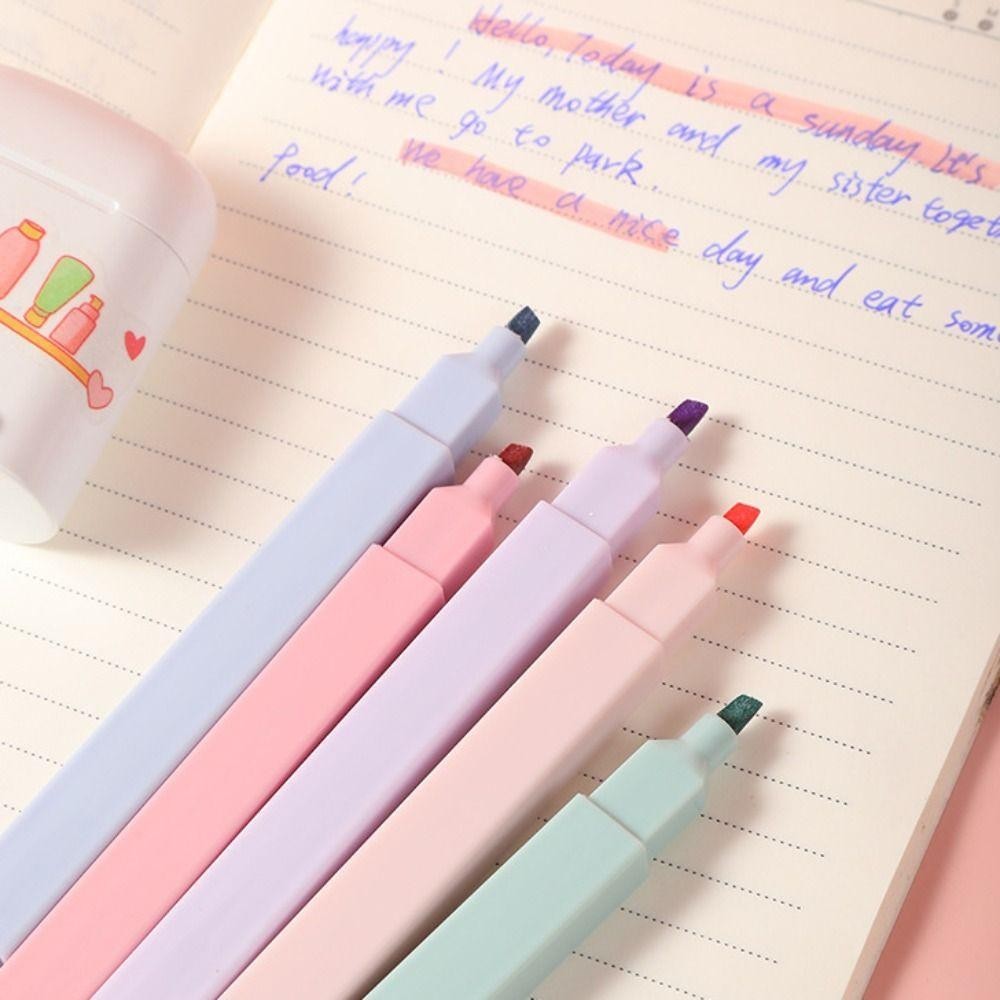 Hello, Today is a sunday. It's
happy ! My mother and my sister togeth
with me go to park.
We have a nice day and eat som
food!